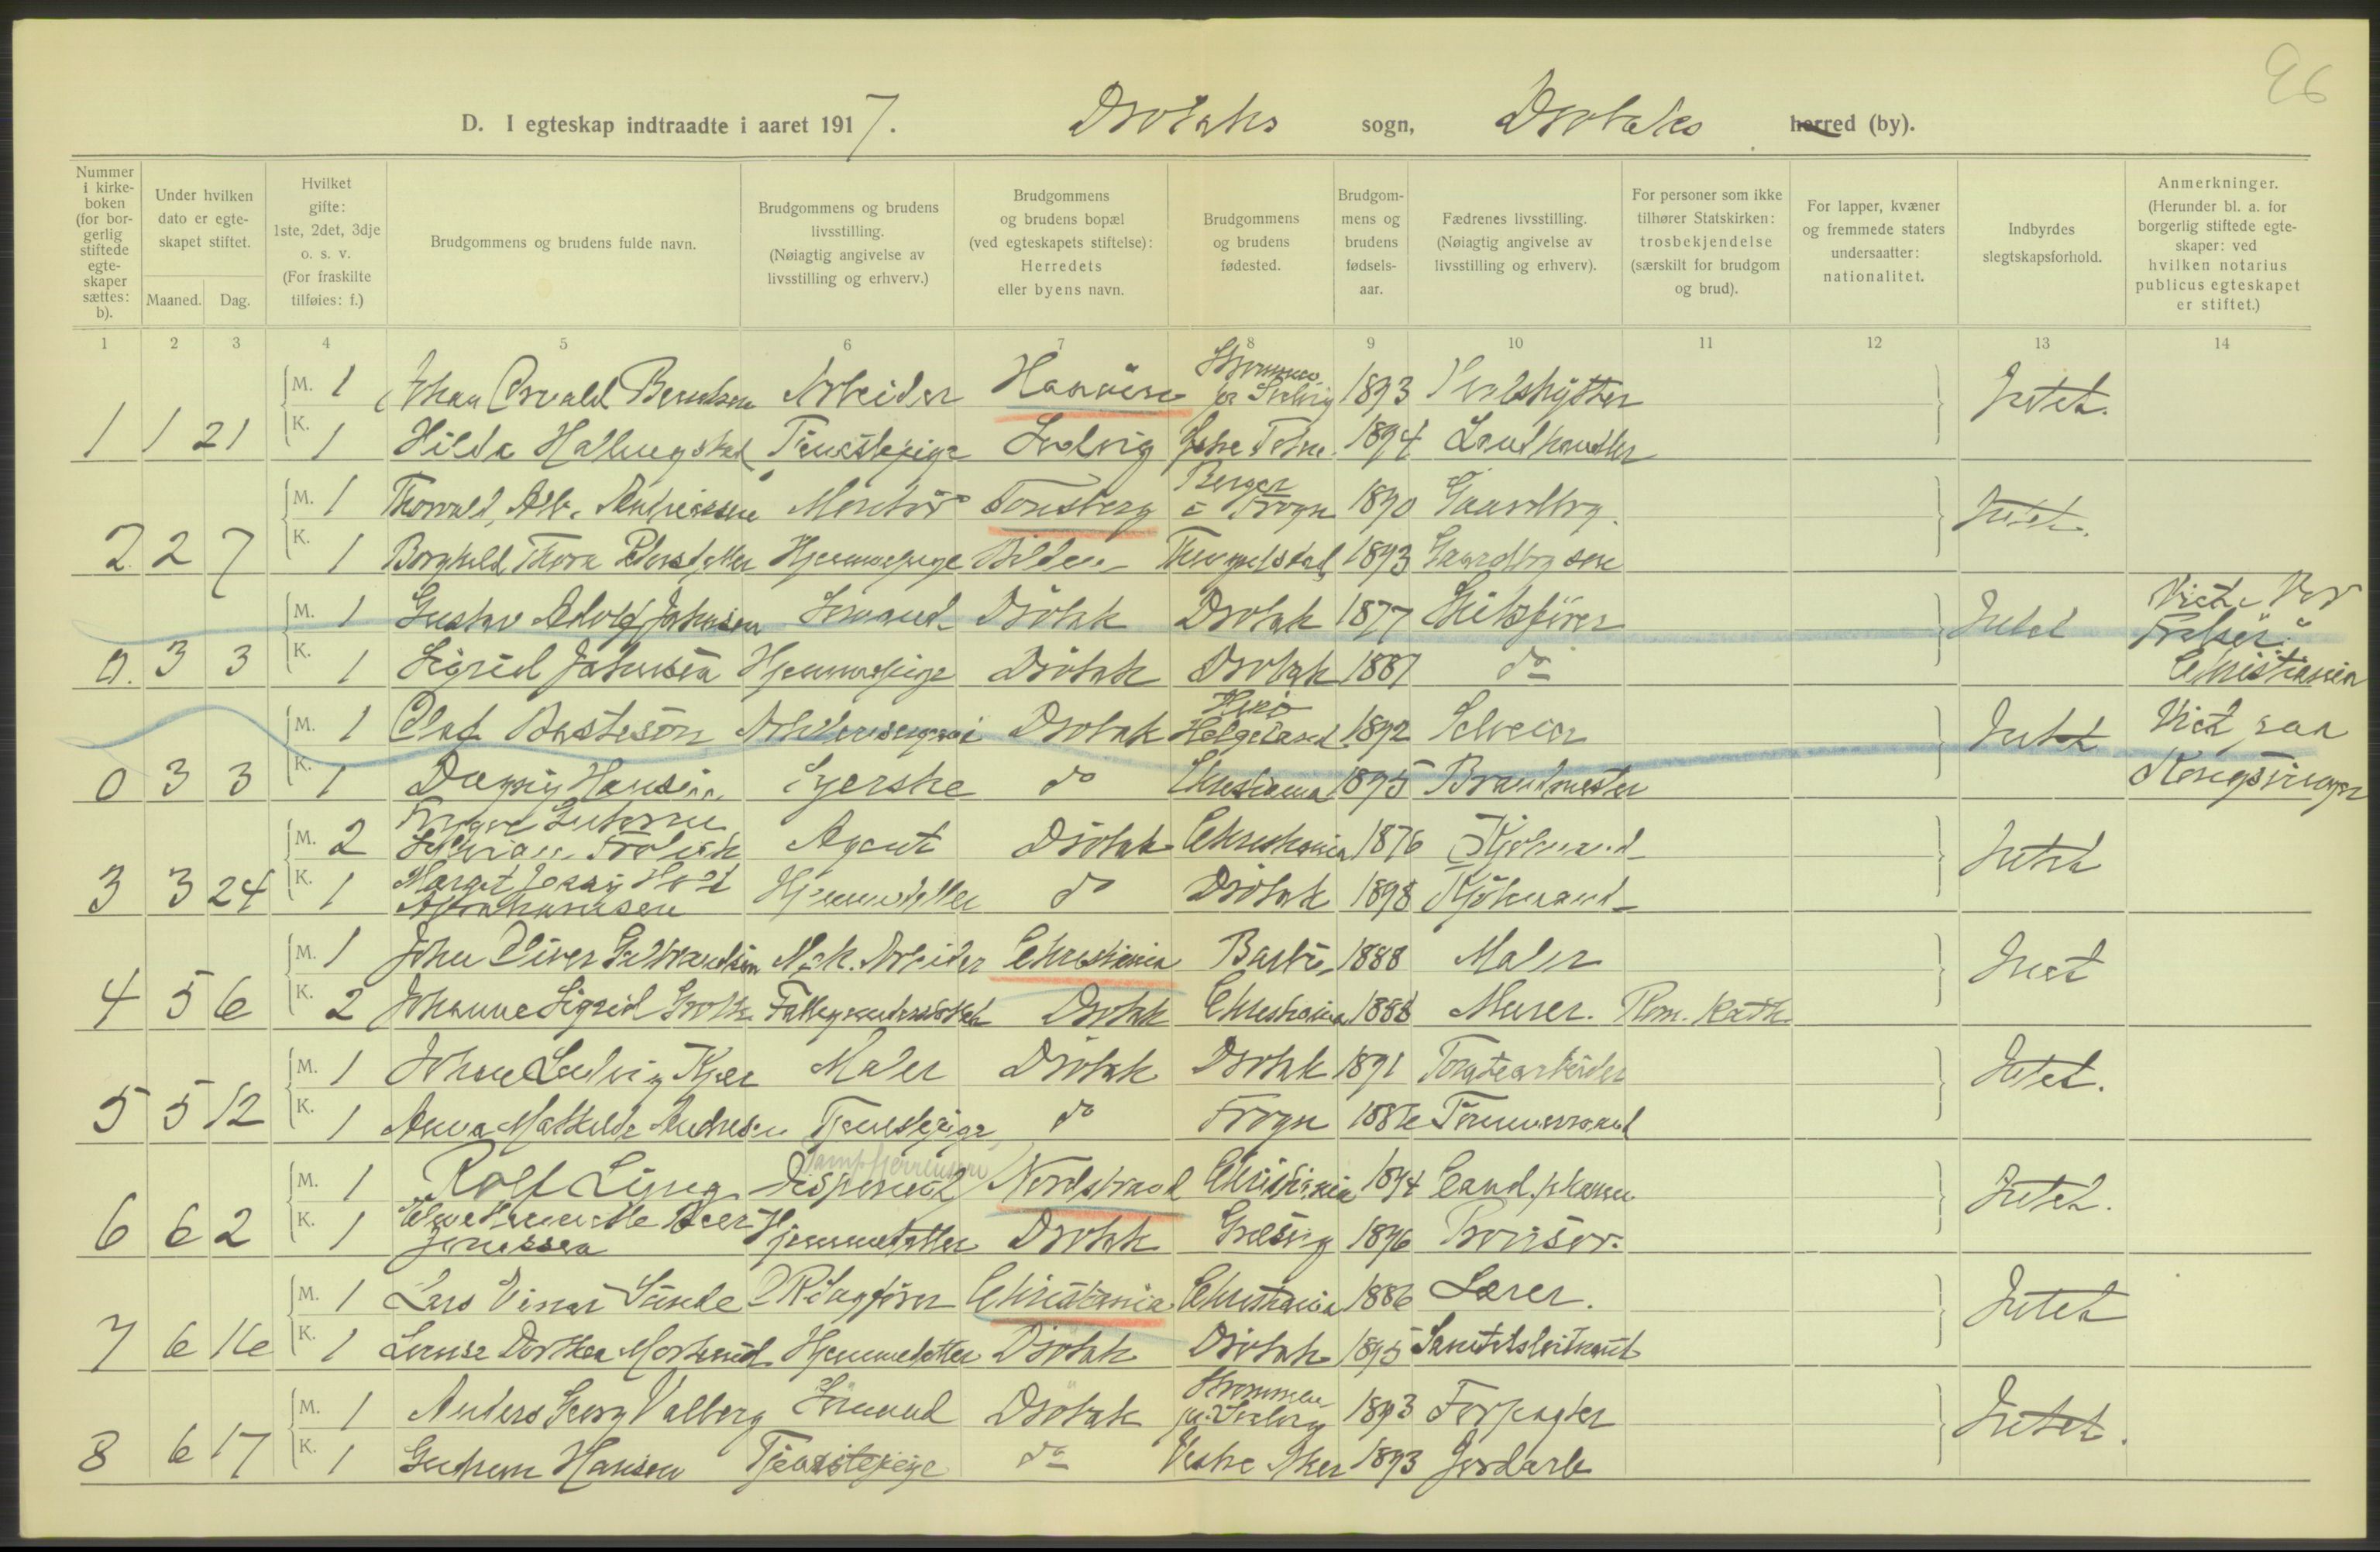 96
D. I egteskap indtraadte i aaret 1917. Drøbaks sogn, Drøbaks herred (by).
Nummer i kirkeboken (for borgerlig stiftede egteskaper sættes: b).
Under hvilken dato er egteskapet stiftet.
Maaned. Dag.
Hvilket gifte: 1ste, 2det, 3dje o. s. v. (For fraskilte tilføies: f.)
Brudgommens og brudens fulde navn.
Brudgommens og brudens livsstilling. (Nøiagtig angivelse av livsstilling og erhverv.)
Brudgommens og brudens bopæl (ved egteskapets stiftelse): Herredets eller byens navn.
Brudgommens og brudens fødested.
Brudgommens og brudens fødselsaar.
Fædrenes livsstilling. (Nøiagtig angivelse av livsstilling og erhverv).
For personer som ikke tilhører Statskirken: trosbekjendelse (særskilt for brudgom og brud).
For lapper, kvæner og fremmede staters undersaatter: nationalitet.
Indbyrdes slegtskapsforhold.
Anmerkninger. (Herunder bl. a. for borgerlig stiftede egteskaper: ved hvilken notarius publicus egteskapet er stiftet.)
1 2 3 4 5 6 7 8 9 10 11 12 13 14
M. 1 Johan Osvald Berntsen Arbeider 1893 Intet.
1 1 21 K. 1 Hilda Tjenestepige Svelvig 1894 Landhandler
M. 1 Thorvald Alb. Andreassen Montør Tønsberg Frogn 1890 Gaardbrg. Intet.
2 2 7 K. 1 Borghild Thora Hjemmepige 1893 Gaardbrgsøn
M. 1 Gustav Adolf Johnsen Sømand Drøbak Drøbak 1877 Skibsfører Intet Viet i Vor Frelser.
0. 3 3 K. 1 Sigrid Johnsen Hjemmepige Drøbak Drøbak 1887 do Christiania
M. 1 Olaf Drøbak Herø Helgeland 1892 Selveier Intet Viet paa
0 3 3 K. 1 Dagny Hansen Syerske do Christiania 1895 Brandmester Kongsvinger
M. 2 Trygve Frölich Agent Drøbak Christiania 1876 Kjøbmand Intet
3 3 24 K. 1 Margit Jenny Holt Abrahamsen Hjemmedatter do Drøbak 1898 Kjøbmand
M. 1 John Oliver Gulbrandsen Mek. Arbeider Christiania 1888 Maler Intet
4 5 6 K. 2 Johanne Sigrid Drøbak Christiania 1888 Murer. Rom. Kath.
M. 1 Johan Ludvig Kjær Maler Drøbak Drøbak 1891 Intet.
5 5 12 K. 1 Anna Mathilde Andresen Tjenestepige do Frogn 1886 Tømmermand
M. 1 Rolf Ling Disponent Nordstrand Christiania 1894 Cand. pharm Intet.
6 6 2 K. 1 Jenssen Hjemmedatter Drøbak 1896 Provisor.
M. 1 Lars Einar Sunde Christiania Christiania 1886 Lærer. Intet
7 6 16 K. 1 Dorthea Hjemmedatter Drøbak Drøbak 1895
M. 1 Anders Georg Valberg Sømand Drøbak Strømmen pr. Svelvig 1893 Forpagter Intet.
8 6 17 K. 1 Gudrun Hansen Tjenestepige do Vestre Aker 1893 Jordarb